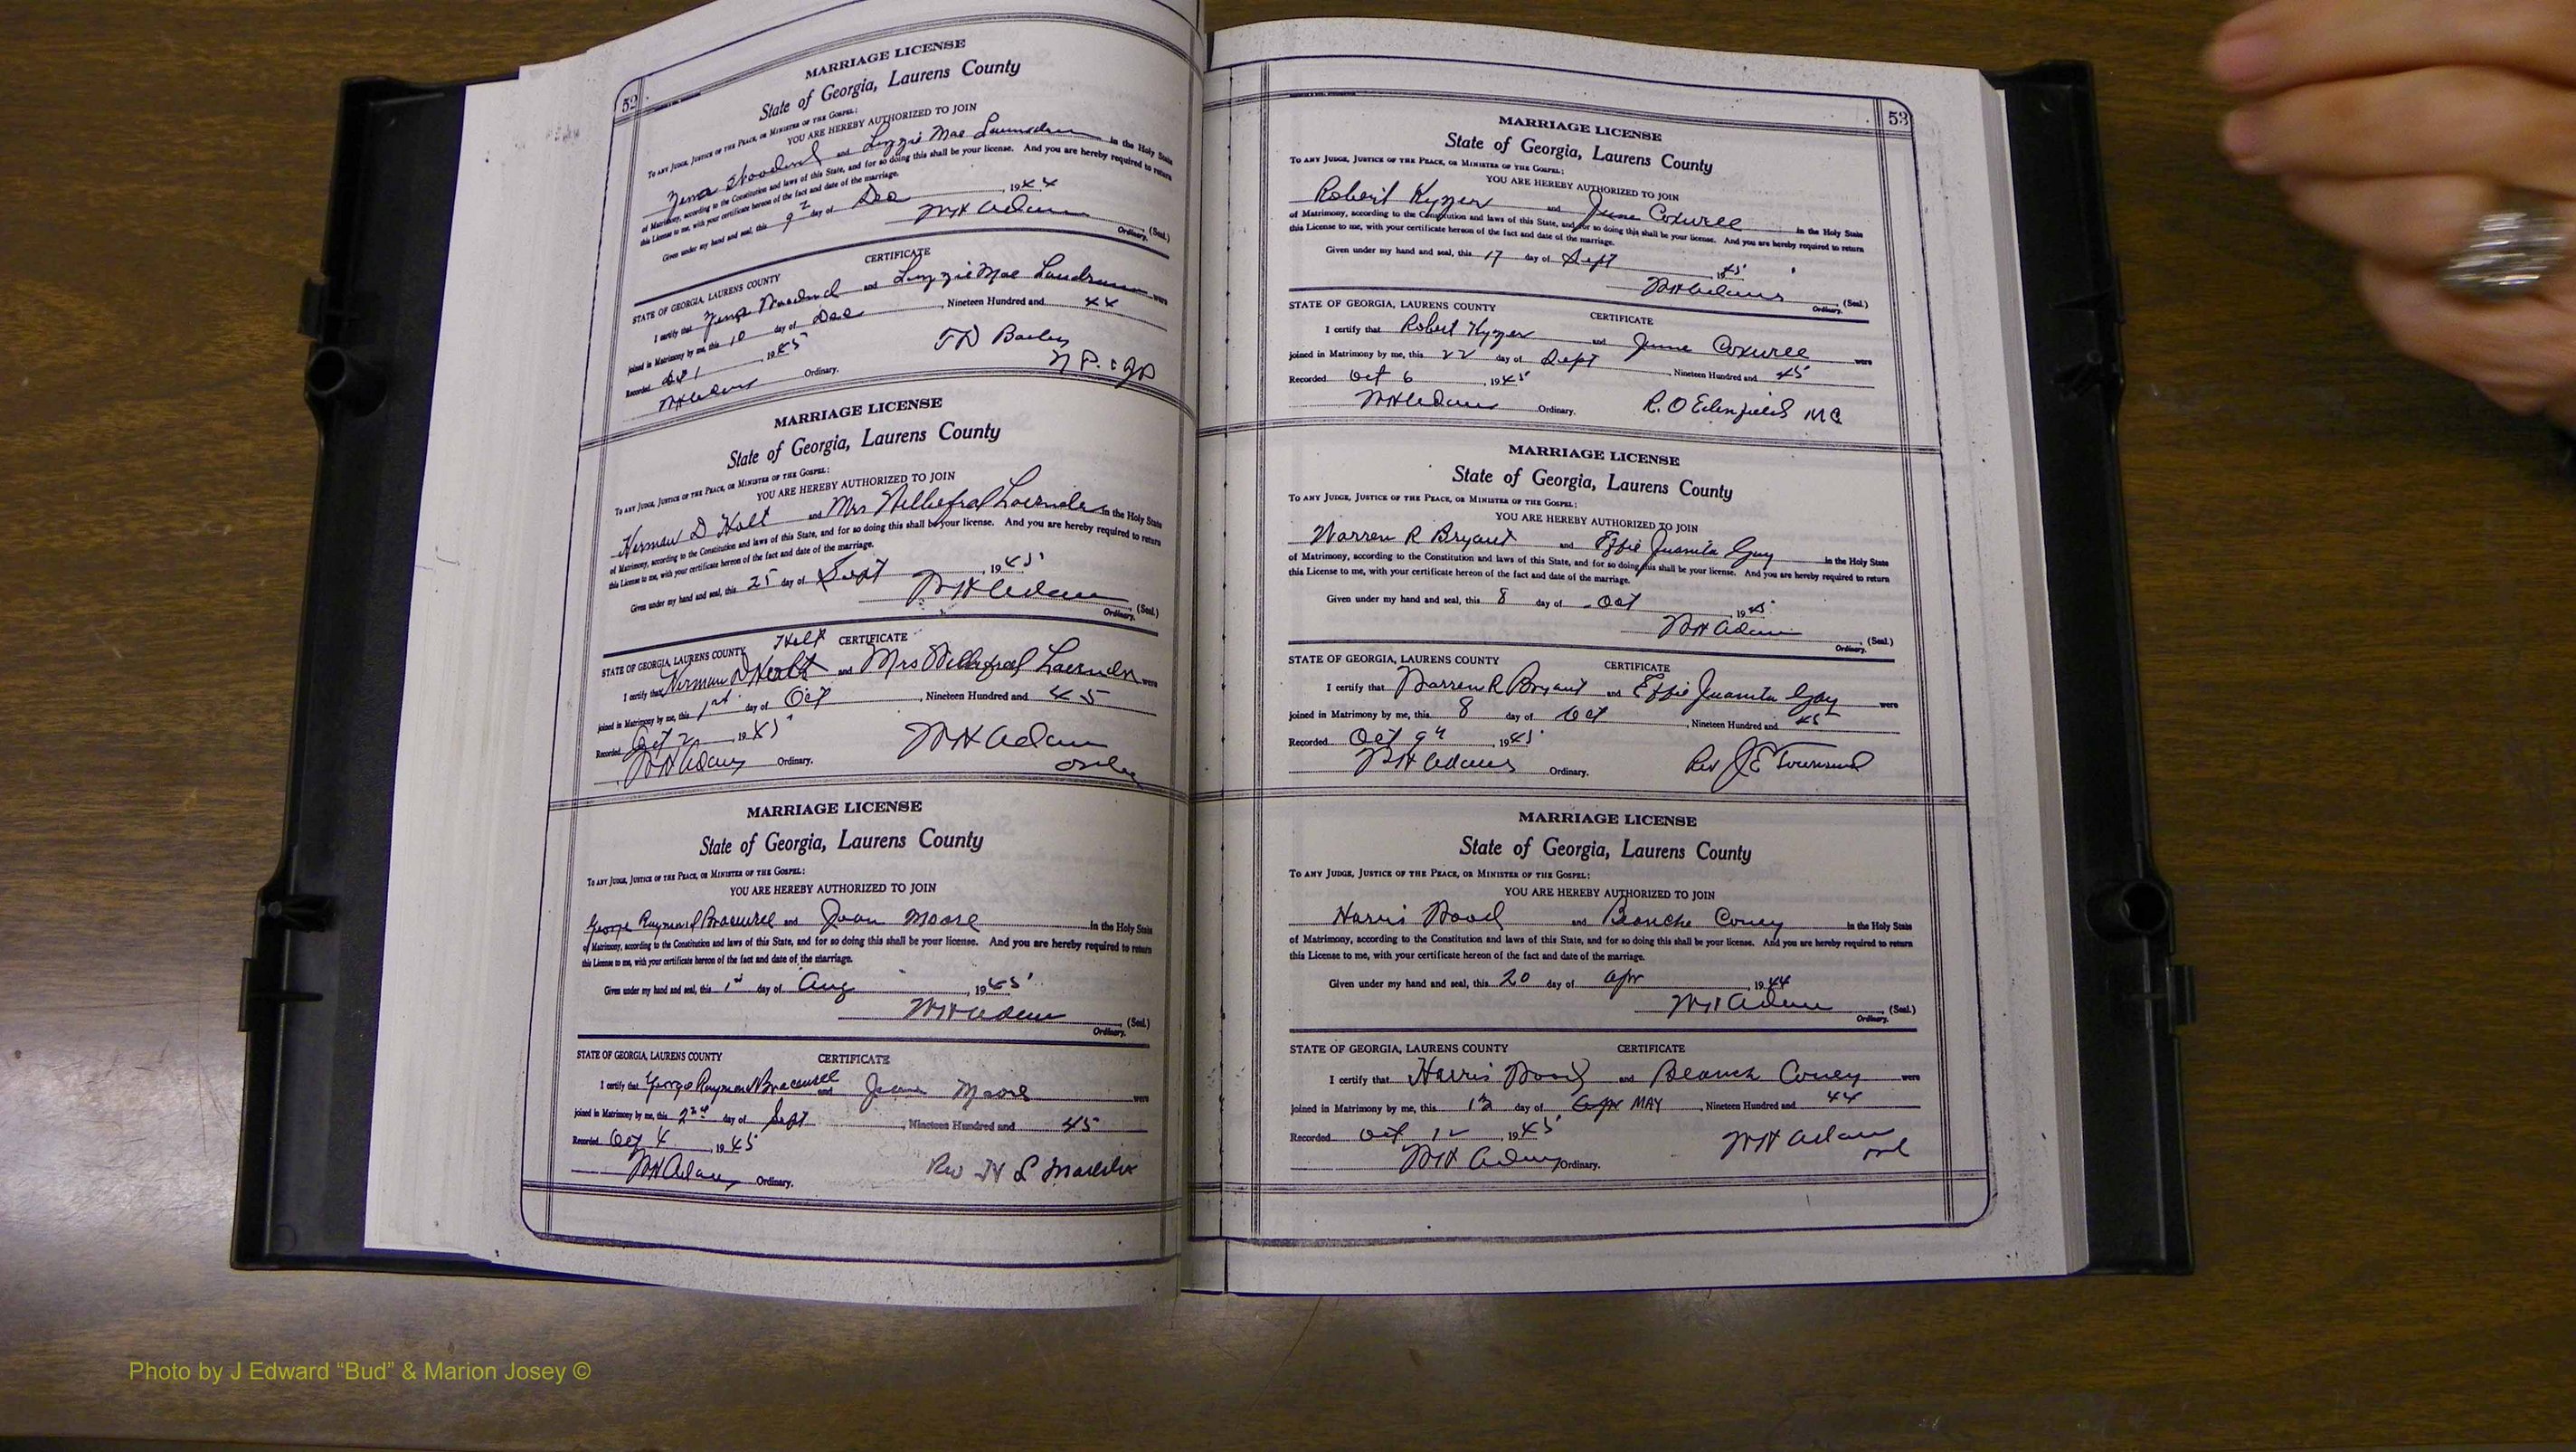 52
MARRIAGE LICENSE
State of Georgia, Laurens County
To any Judge, Justice of the Peace, or Minister of the Gospel:
YOU ARE HEREBY AUTHORIZED TO JOIN
and Lizzie Mae in the Holy State
of Matrimony, according to the Constitution and laws of this State, and for so doing this shall be your license. And you are hereby required to return
this License to me, with your certificate hereon of the fact and date of the marriage.
Given under my hand and seal, this 9 day of Dec, 1944
WH Adams (Seal.)
Ordinary.
STATE OF GEORGIA, LAURENS COUNTY CERTIFICATE
I certify that and Lizzie Mae Landrum were
joined in Matrimony by me, this 10 day of Dec, Nineteen Hundred and 44
Recorded Oct 1, 1945
WH Adams Ordinary.
N P. &
MARRIAGE LICENSE
State of Georgia, Laurens County
To any Judge, Justice of the Peace, or Minister of the Gospel:
YOU ARE HEREBY AUTHORIZED TO JOIN
Herman D Holt and Mrs in the Holy State
of Matrimony, according to the Constitution and laws of this State, and for so doing this shall be your license. And you are hereby required to return
this License to me, with your certificate hereon of the fact and date of the marriage.
Given under my hand and seal, this 25 day of Sept, 1945
WH Adams (Seal.)
Ordinary.
Holt
STATE OF GEORGIA, LAURENS COUNTY CERTIFICATE
I certify that Herman D and Mrs were
joined in Matrimony by me, this 1st day of Oct, Nineteen Hundred and 45
Recorded Oct 2, 1945
WH Adams Ordinary.
WH Adams
MARRIAGE LICENSE
State of Georgia, Laurens County
To any Judge, Justice of the Peace, or Minister of the Gospel:
YOU ARE HEREBY AUTHORIZED TO JOIN
George Raymond Bracewell and Joan Moore in the Holy State
of Matrimony, according to the Constitution and laws of this State, and for so doing this shall be your license. And you are hereby required to return
this License to me, with your certificate hereon of the fact and date of the marriage.
Given under my hand and seal, this 1st day of Aug, 1945
WH Adams (Seal.)
Ordinary.
STATE OF GEORGIA, LAURENS COUNTY CERTIFICATE
I certify that George Raymond Bracewell and Moore were
joined in Matrimony by me, this 2nd day of Sept, Nineteen Hundred and 45
Recorded Oct 4, 1945
WH Adams Ordinary.
Rev
53
MARRIAGE LICENSE
State of Georgia, Laurens County
To any Judge, Justice of the Peace, or Minister of the Gospel:
YOU ARE HEREBY AUTHORIZED TO JOIN
Robert Kyzer and June Coxwell in the Holy State
of Matrimony, according to the Constitution and laws of this State, and for so doing this shall be your license. And you are hereby required to return
this License to me, with your certificate hereon of the fact and date of the marriage.
Given under my hand and seal, this 17 day of Sept 1945
WH Adams (Seal.)
Ordinary.
STATE OF GEORGIA, LAURENS COUNTY CERTIFICATE
I certify that Robert Kyzer and June Coxwell were
joined in Matrimony by me, this 22 day of Sept, Nineteen Hundred and 45
Recorded Oct 6, 1945
WH Adams Ordinary.
R. O Edenfield MG
MARRIAGE LICENSE
State of Georgia, Laurens County
To any Judge, Justice of the Peace, or Minister of the Gospel:
YOU ARE HEREBY AUTHORIZED TO JOIN
Warren R Bryant and Effie Juanita Gay in the Holy State
of Matrimony, according to the Constitution and laws of this State, and for so doing this shall be your license. And you are hereby required to return
this License to me, with your certificate hereon of the fact and date of the marriage.
Given under my hand and seal, this 8 day of Oct, 1945
WH Adams (Seal.)
Ordinary.
STATE OF GEORGIA, LAURENS COUNTY CERTIFICATE
I certify that Warren R Bryant and Effie Juanita Gay were
joined in Matrimony by me, this 8 day of Oct, Nineteen Hundred and 45
Recorded Oct 9th, 1945
WH Adams Ordinary.
Rev J E Townsend
MARRIAGE LICENSE
State of Georgia, Laurens County
To any Judge, Justice of the Peace, or Minister of the Gospel:
YOU ARE HEREBY AUTHORIZED TO JOIN
Harris Wood and Blanche Coney in the Holy State
of Matrimony, according to the Constitution and laws of this State, and for so doing this shall be your license. And you are hereby required to return
this License to me, with your certificate hereon of the fact and date of the marriage.
Given under my hand and seal, this 20 day of Apr, 1944
WH Adams (Seal.)
Ordinary.
STATE OF GEORGIA, LAURENS COUNTY CERTIFICATE
I certify that Harris Wood and Blanch Coney were
joined in Matrimony by me, this 13 day of Apr MAY, Nineteen Hundred and 44
Recorded Oct 12, 1945
WH Adams Ordinary.
WH Adams
Photo by J Edward “Bud” & Marion Josey ©